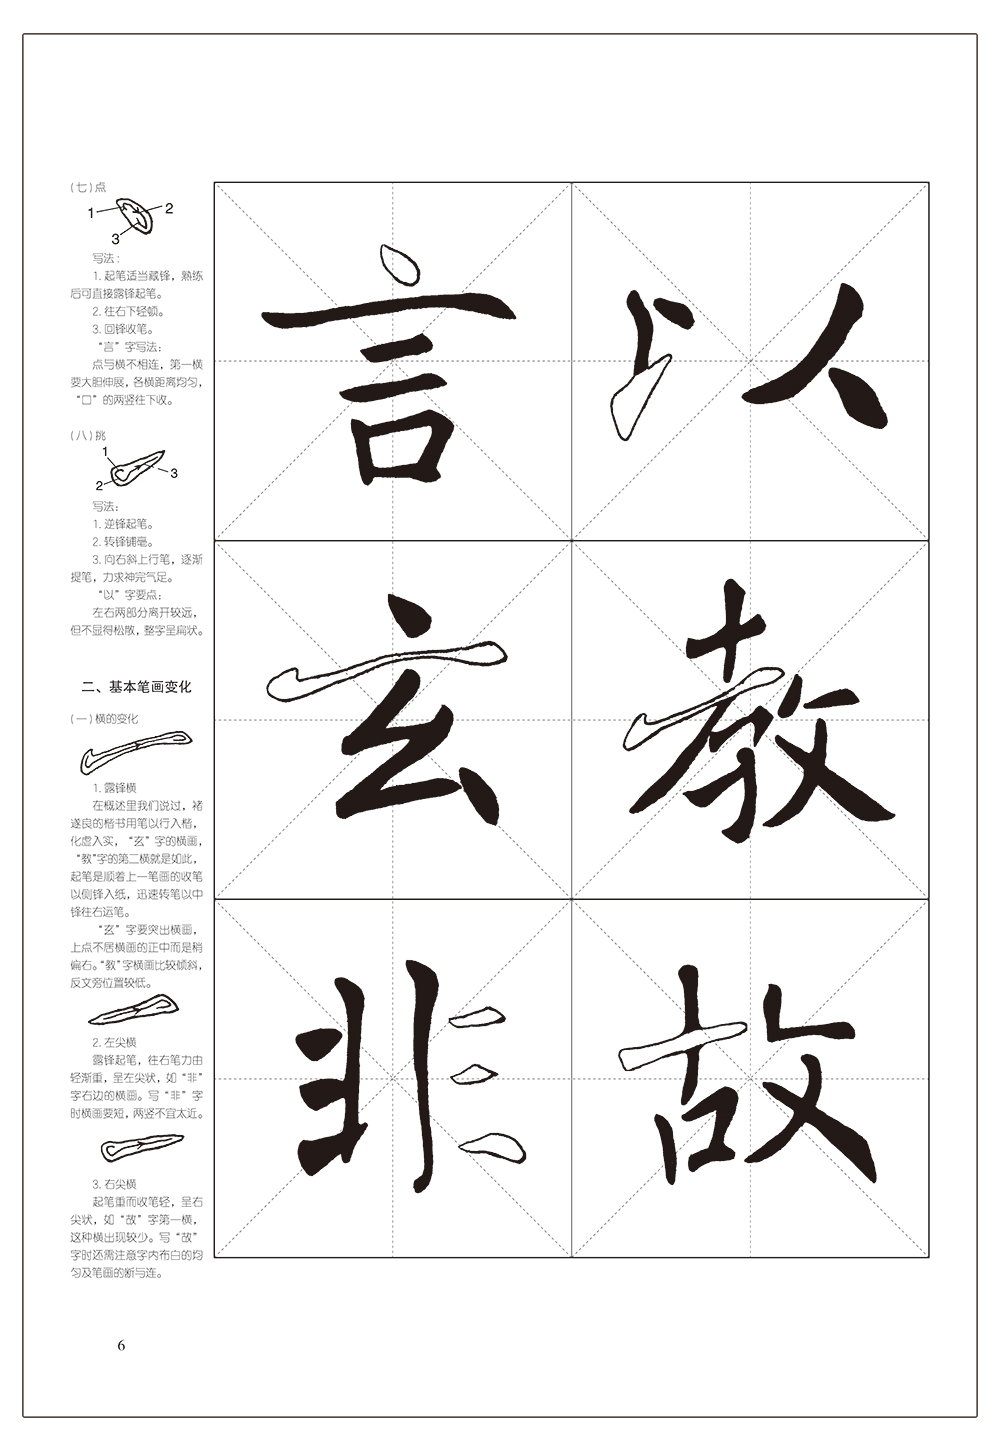 (七)点
1 2
3
写法：
1. 起笔适当藏锋，熟练
后可直接露锋起笔。
2. 往右下轻顿。
3. 回锋收笔。
“言”字写法：
点与横不相连，第一横
要大胆伸展，各横距离均匀，
“口”的两竖往下收。
(八)挑
1
2 3
写法：
1. 逆锋起笔。
2. 转锋铺毫。
3. 向右斜上行笔，逐渐
提笔，力求神完气足。
“以”字要点：
左右两部分离开较远，
但不显得松散，整字呈扁状。
二、基本笔画变化
(一)横的变化
1. 露锋横
在概述里我们说过，褚
遂良的楷书用笔以行入楷，
化虚入实，“玄”字的横画，
“教”字的第二横就是如此，
起笔是顺着上一笔画的收笔
以侧锋入纸，迅速转笔以中
锋往右运笔。
“玄”字要突出横画，
上点不居横画的正中而是稍
偏右。“教”字横画比较倾斜，
反文旁位置较低。
2. 左尖横
露锋起笔，往右笔力由
轻渐重，呈左尖状，如“非”
字右边的横画。写“非”字
时横画要短，两竖不宜太近。
3. 右尖横
起笔重而收笔轻，呈右
尖状，如“故”字第一横，
这种横出现较少。写“故”
字时还需注意字内布白的均
匀及笔画的断与连。
言 以
玄 教
非 故
6